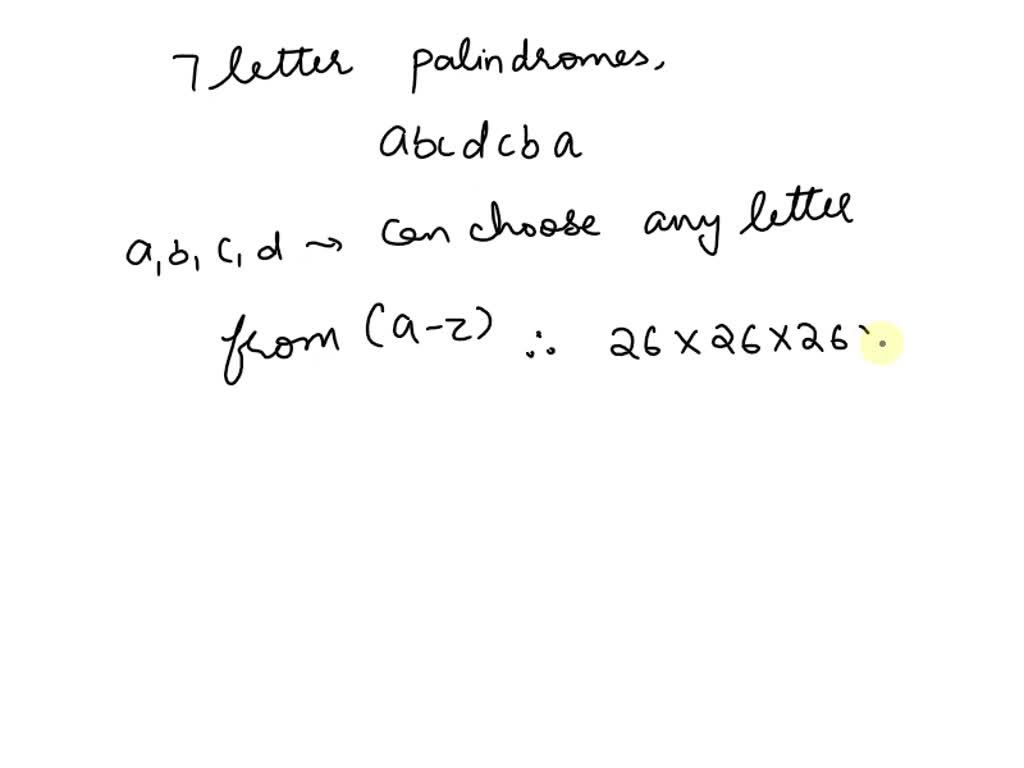 7 letter palindromes,
abcdcba
a, b, c, d → can choose any letter
from (a-z) ∴ 26 × 26 × 26